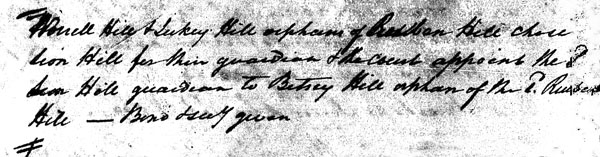 Worrell Hill & Lukey Hill orphans of Reuben Hill chose
Sion Hill for their guardian & the court appoint the Sd
Sion Hill guardian to Betsey Hill orphan of the Sd Reuben
Hill — Bond & secy given